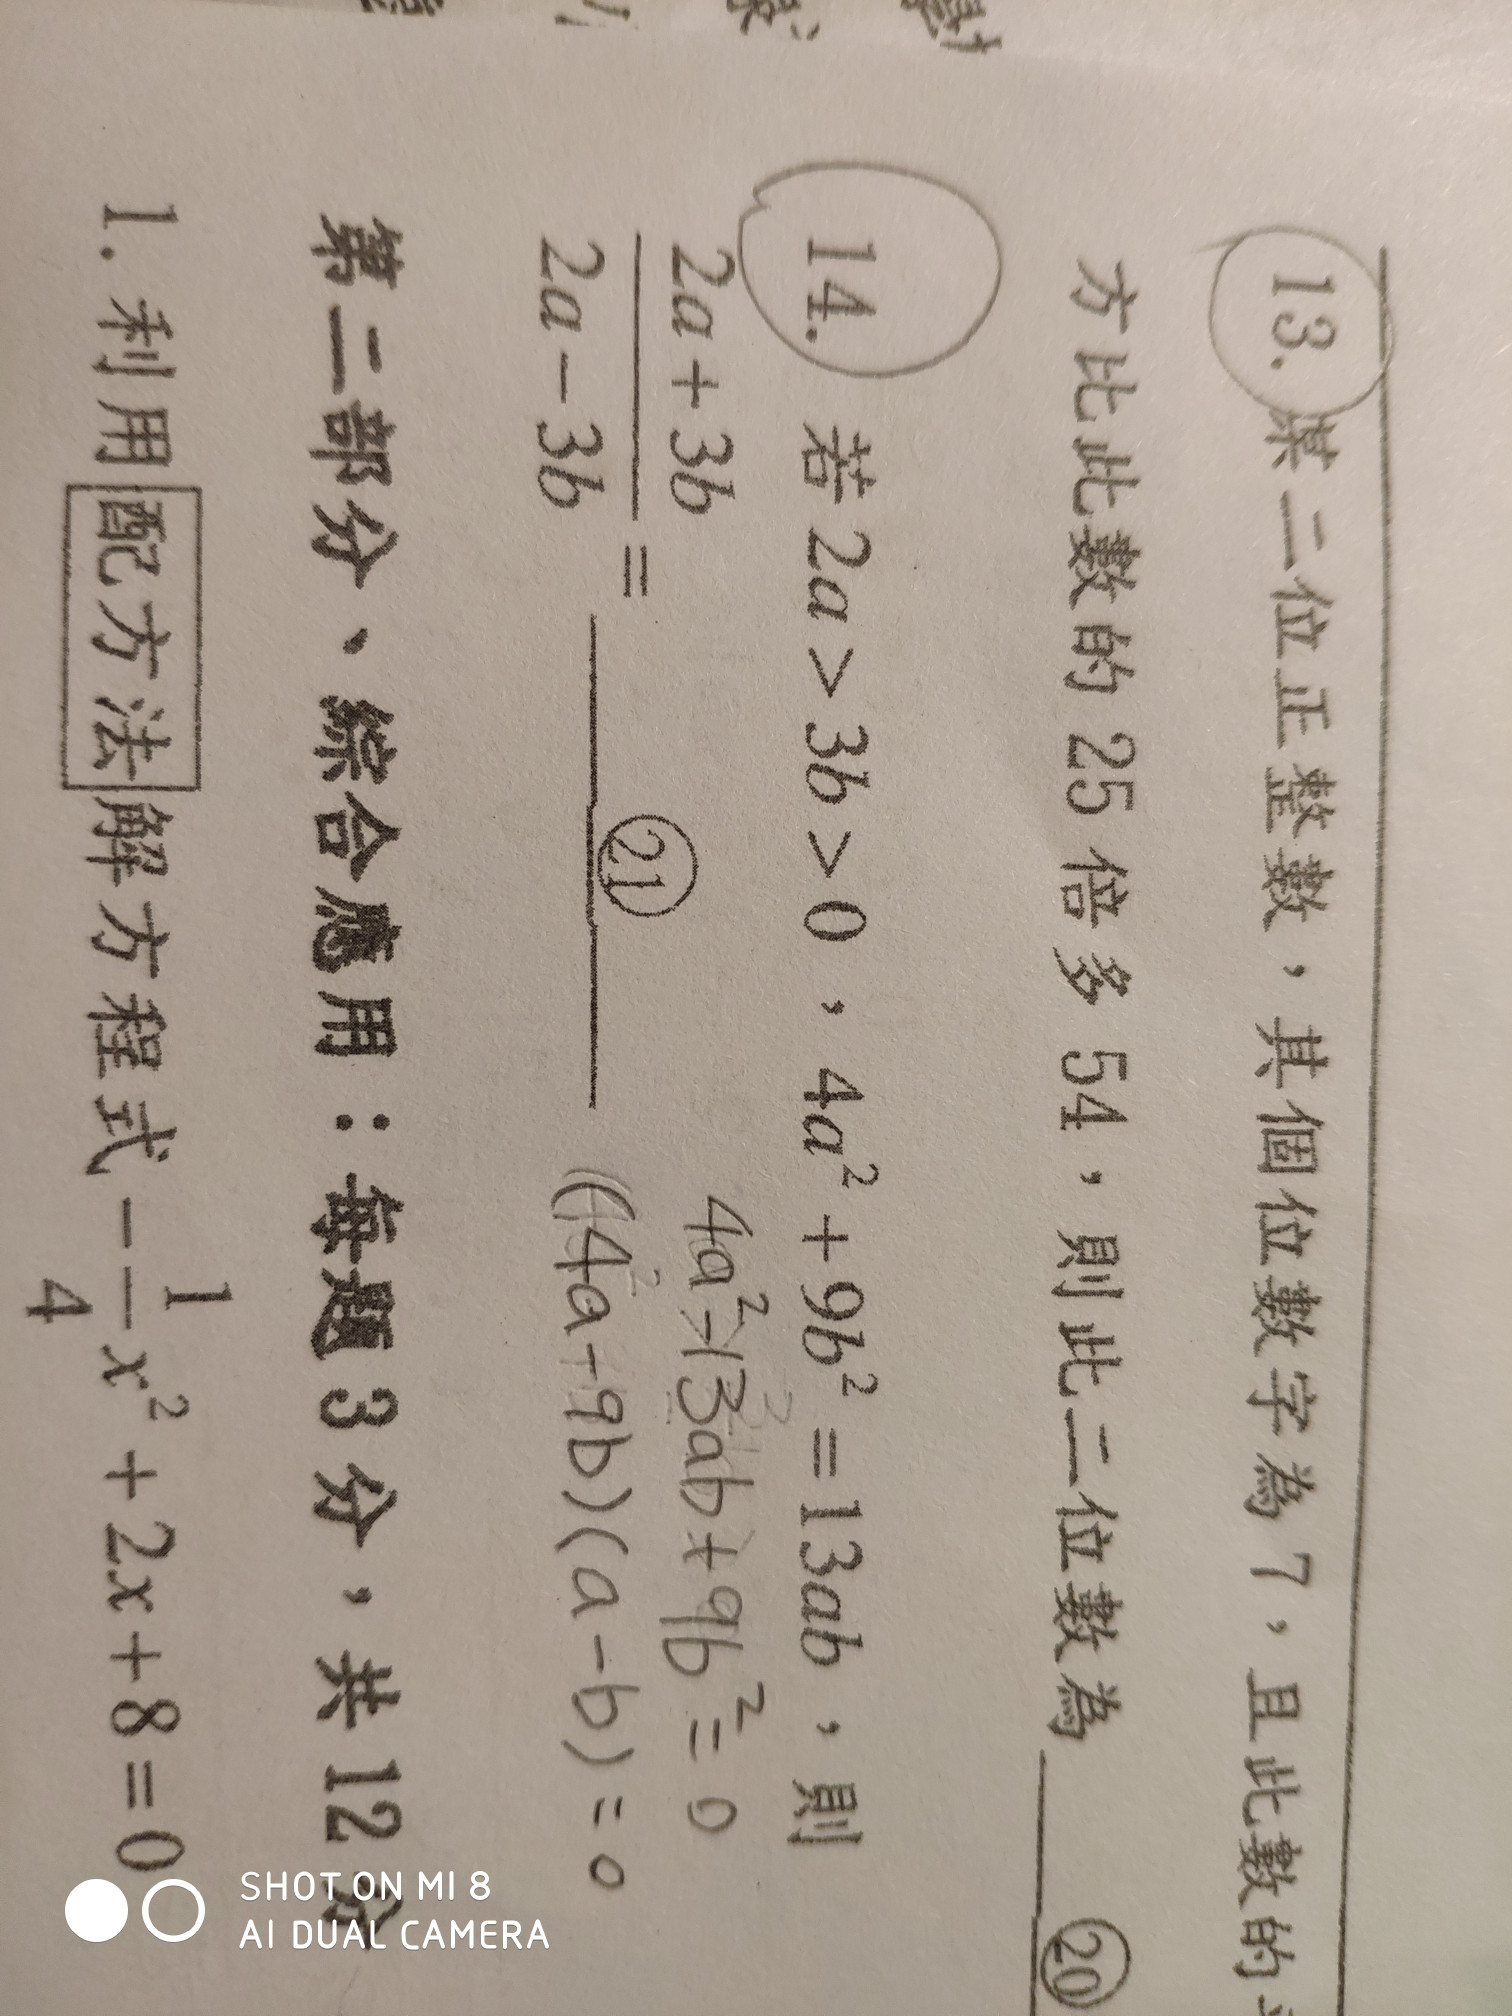 13. 某二位正整數，其個位數字為 7，且此數的
方比此數的 25 倍多 54，則此二位數為 ⑳
14. 若 2a > 3b > 0，4a² + 9b² = 13ab，則
4a² - 13ab + 9b² = 0
2a + 3b
2a - 3b
= ㉑
(4a - 9b)(a - b) = 0
第二部分、綜合應用：每題 3 分，共 12 分
1. 利用配方法解方程式 - 1/4 x² + 2x + 8 = 0
SHOT ON MI 8
AI DUAL CAMERA